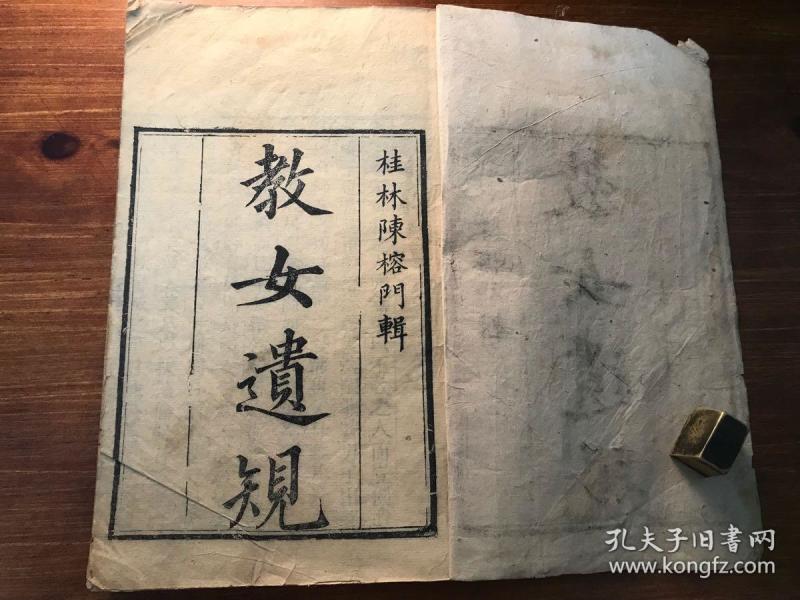 桂林陳榕門輯
教女遺規
孔夫子旧書网
www.kongfz.com